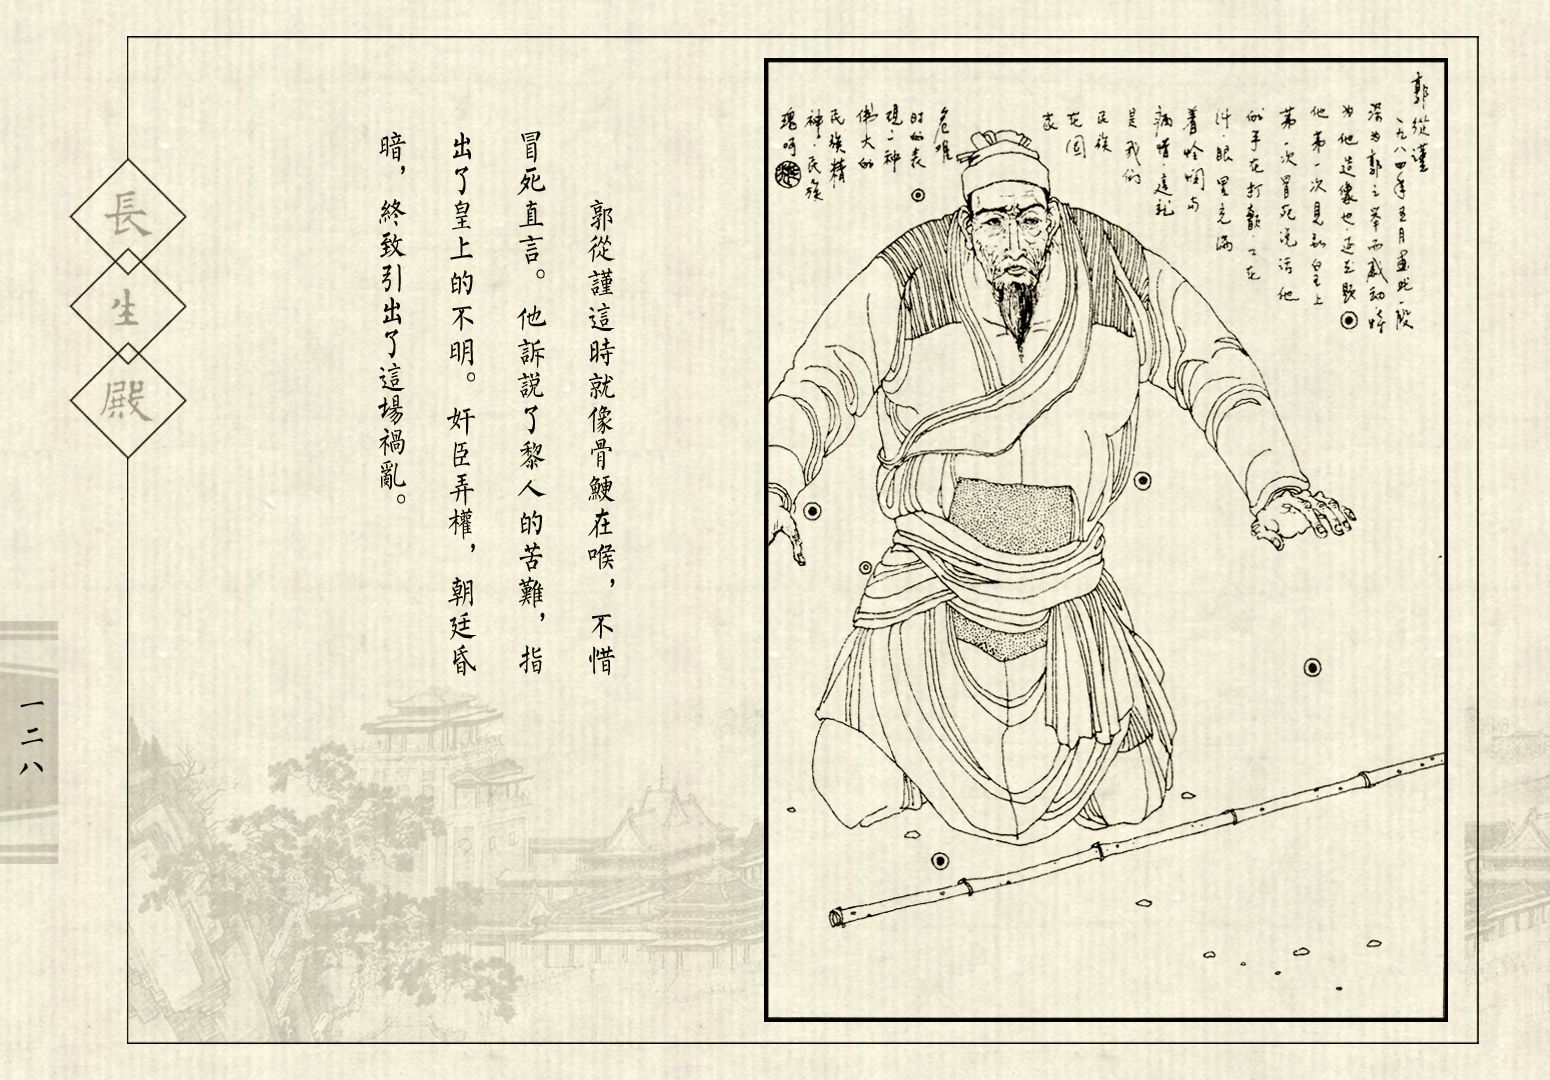 郭從謹
一九八四年五月畫此一段
深为郭之举而感动 時
为他造像也
他第一次見到皇上
第一次冒死说话 他
的手在打颤 口在
眼里充满
着怜悯与
惜 這就
是我的
民族
在国
家
危难
時的表
現 一种
伟大的
民族精
神 民族
魂呵
郭從謹這時就像骨鯁在喉，不惜
冒死直言。他訴説了黎人的苦難，指
出了皇上的不明。奸臣弄權，朝廷昏
暗，終致引出了這場禍亂。
長生殿
一二八